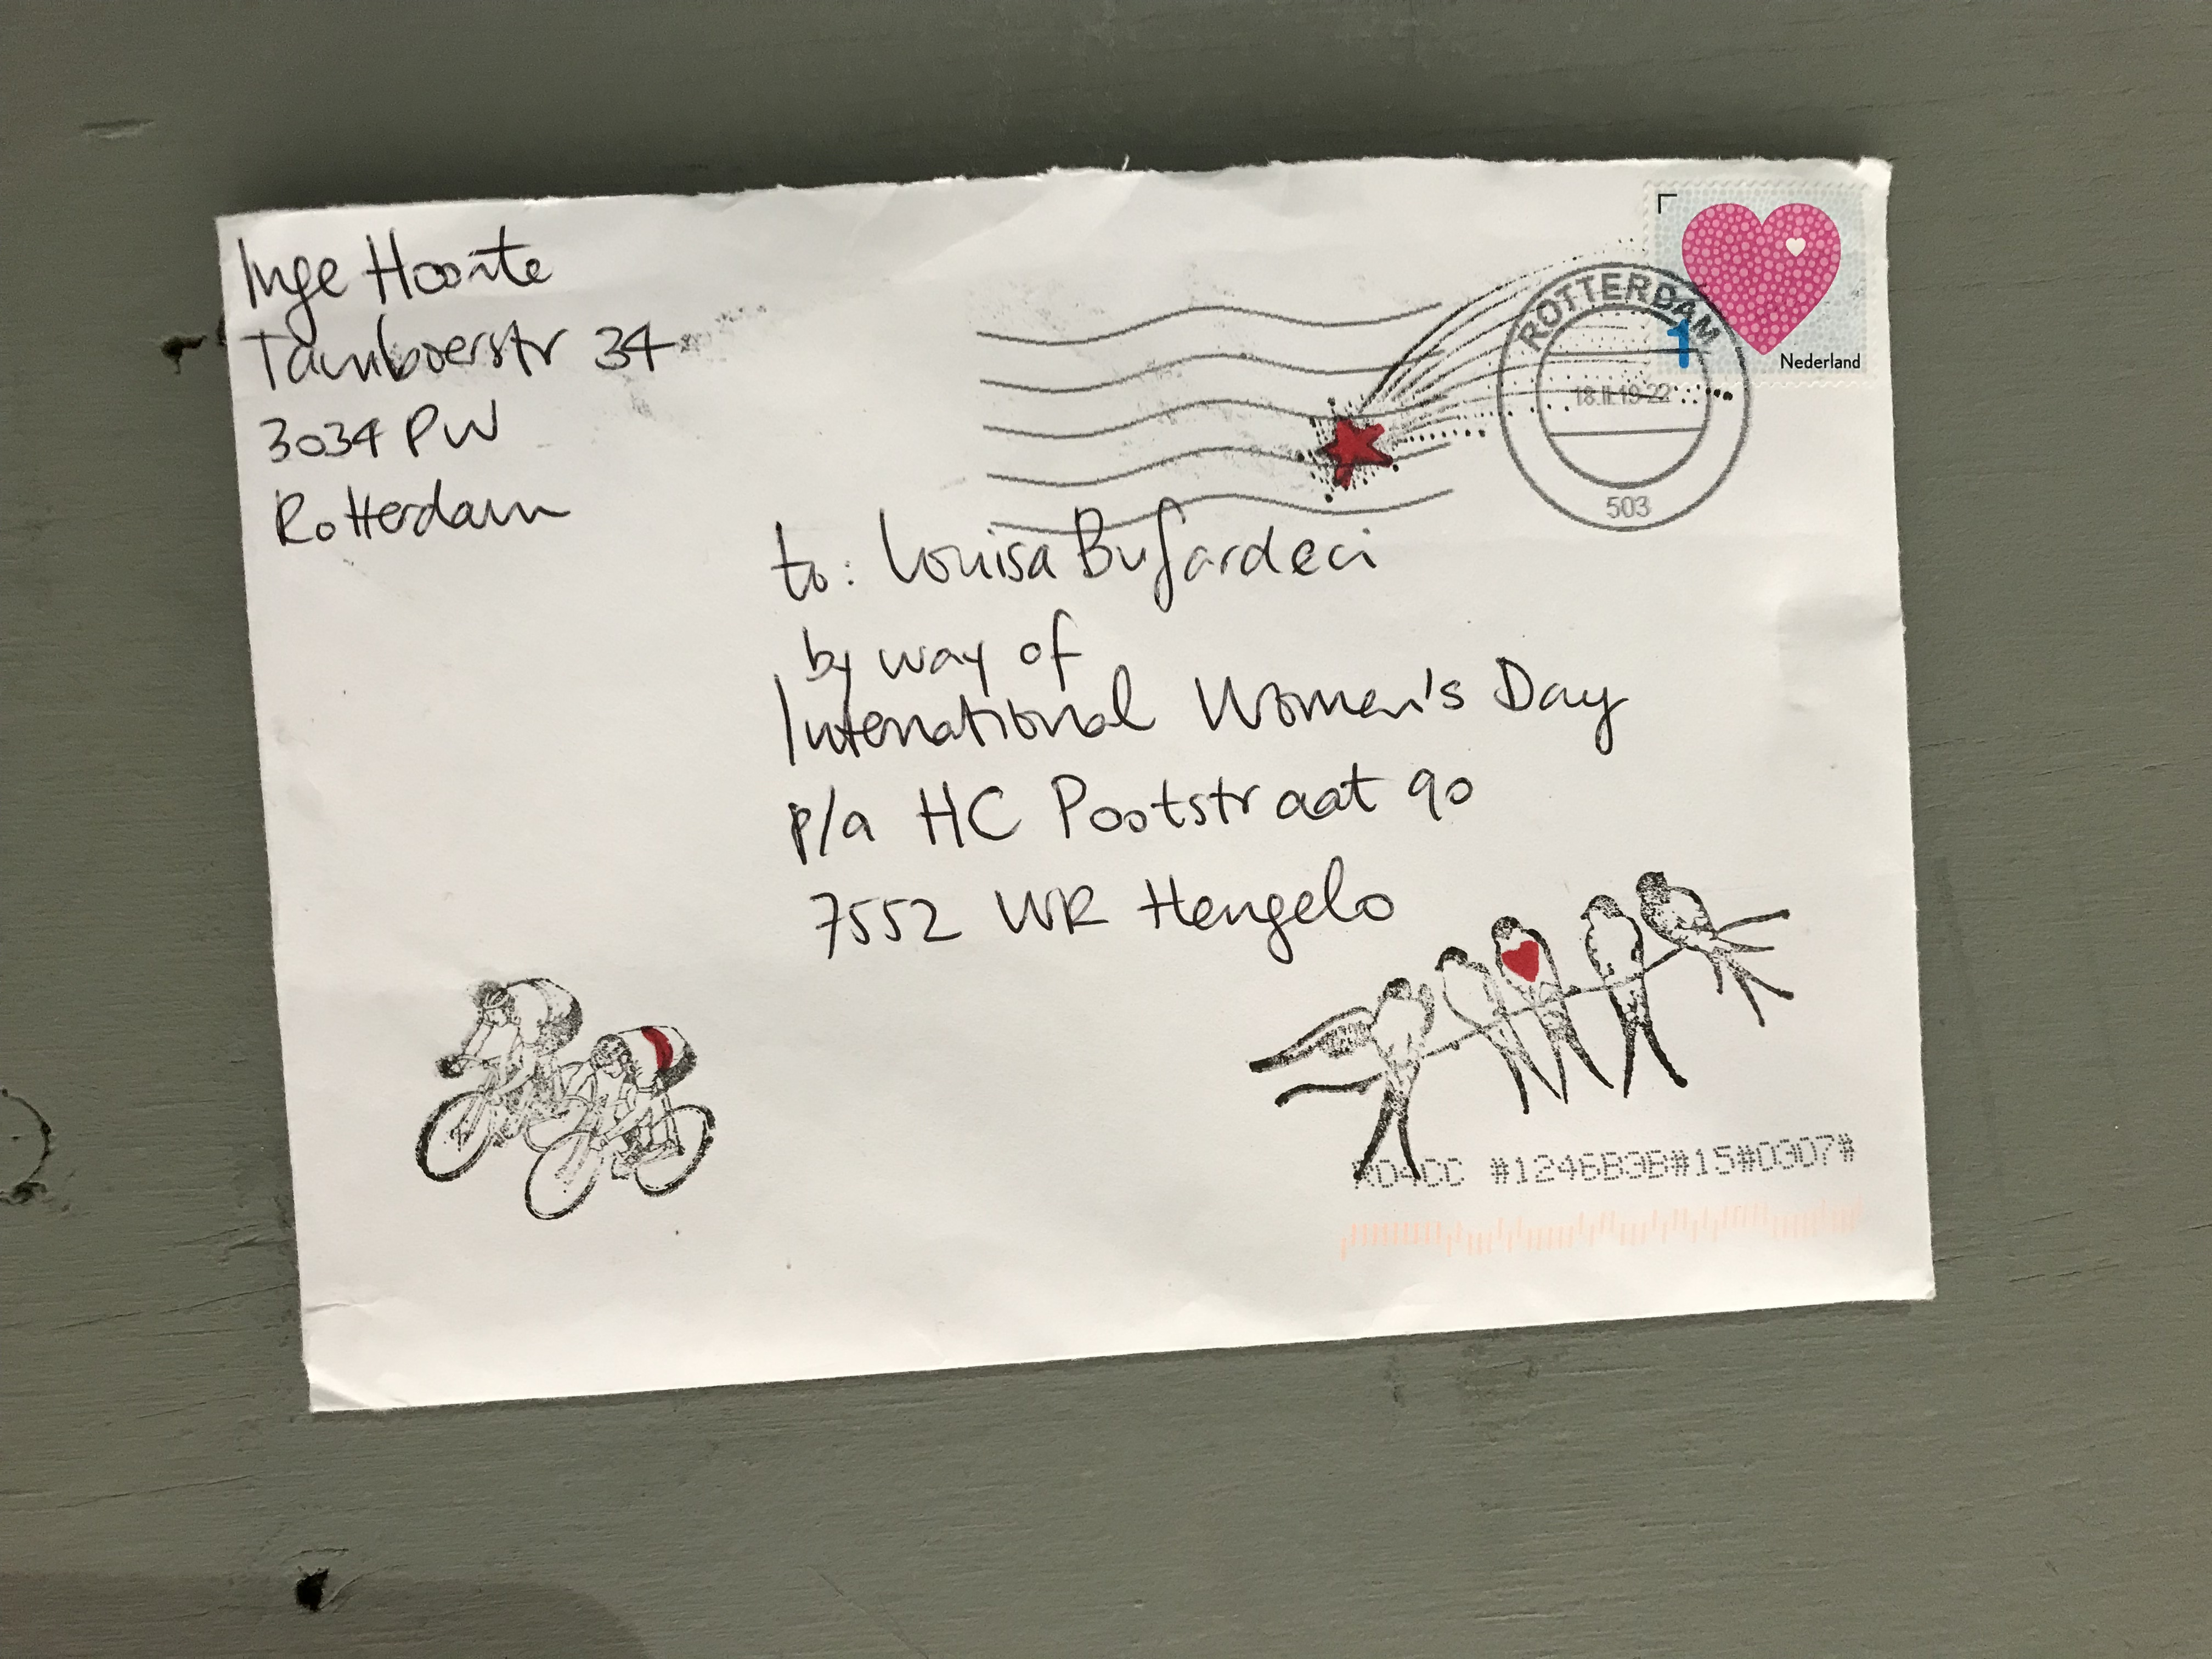 Inge Hoonte
Tamboerstr 34
3034 PW
Rotterdam
1
Nederland
ROTTERDAM
18.II.19-22
503
to: Louisa Bufardeci
by way of
International Women's Day
p/a HC Pootstraat 90
7552 WR Hengelo
#1246B3B#15#0307#